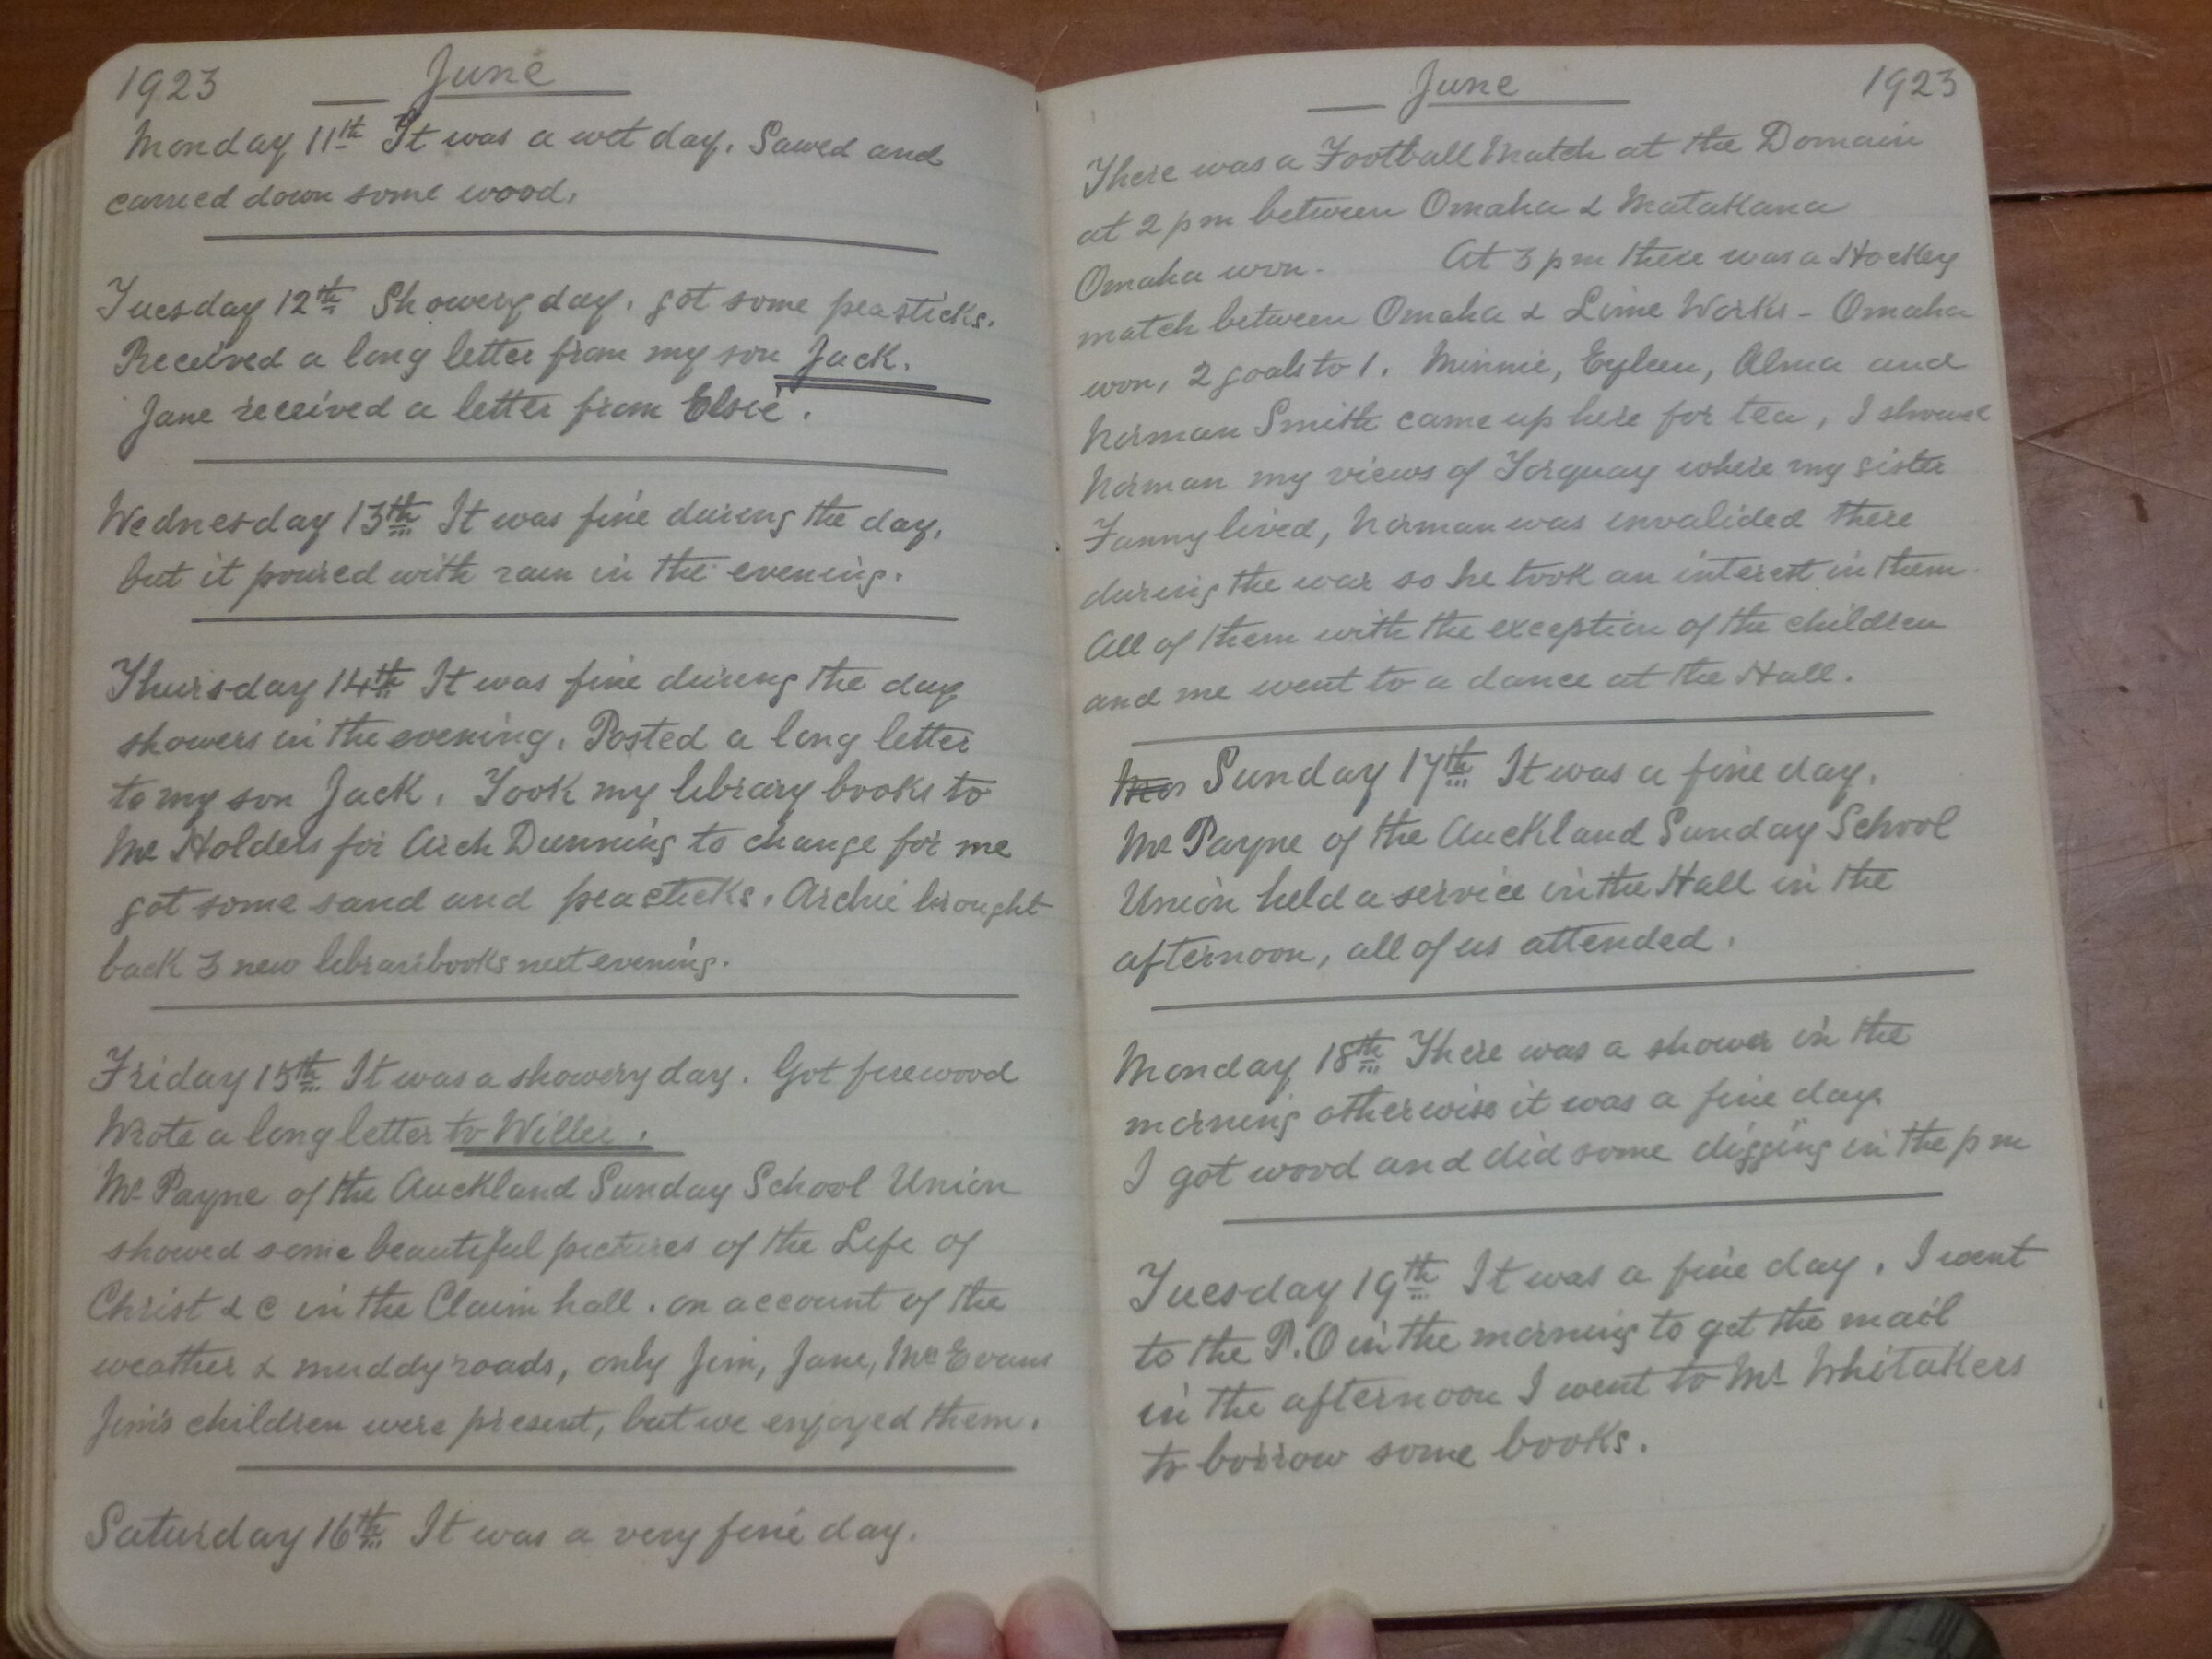 1923 June
Monday 11th It was a wet day. Sawed and
carried down some wood.
Tuesday 12th Showery day. got some peasticks.
Received a long letter from my son Jack.
Jane received a letter from Elsie.
Wednesday 13th It was fine during the day,
but it poured with rain in the evening.
Thursday 14th It was fine during the day
showers in the evening. Posted a long letter
to my son Jack. Took my library books to
Mr Holders for Arch Dunning to change for me
got some sand and peasticks. Archie brought
back 3 new library books next evening.
Friday 15th It was a showery day. Got firewood
Wrote a long letter to Willie.
Mr Payne of the Auckland Sunday School Union
showed some beautiful pictures of the Life of
Christ &c in the Claim hall. on account of the
weather & muddy roads, only Jim, Jane, Mr Evans
Jim's children were present, but we enjoyed them.
Saturday 16th It was a very fine day.
June 1923
There was a Football Match at the Domain
at 2 pm between Omaha & Matakana
Omaha won. At 3 pm there was a Hockey
match between Omaha & Lime Works - Omaha
won, 2 goals to 1. Minnie, Eyleen, Alma and
Norman Smith came up here for tea, I showed
Norman my views of Torquay where my sister
Fanny lived, Norman was invalided there
during the war so he took an interest in them.
All of them with the exception of the children
and me went to a dance at the Hall.
Sunday 17th It was a fine day.
Mr Payne of the Auckland Sunday School
Union held a service in the Hall in the
afternoon, all of us attended.
Monday 18th There was a shower in the
morning otherwise it was a fine day
I got wood and did some digging in the pm
Tuesday 19th It was a fine day. I went
to the P.O in the morning to get the mail
in the afternoon I went to Mr Whitakers
to borrow some books.